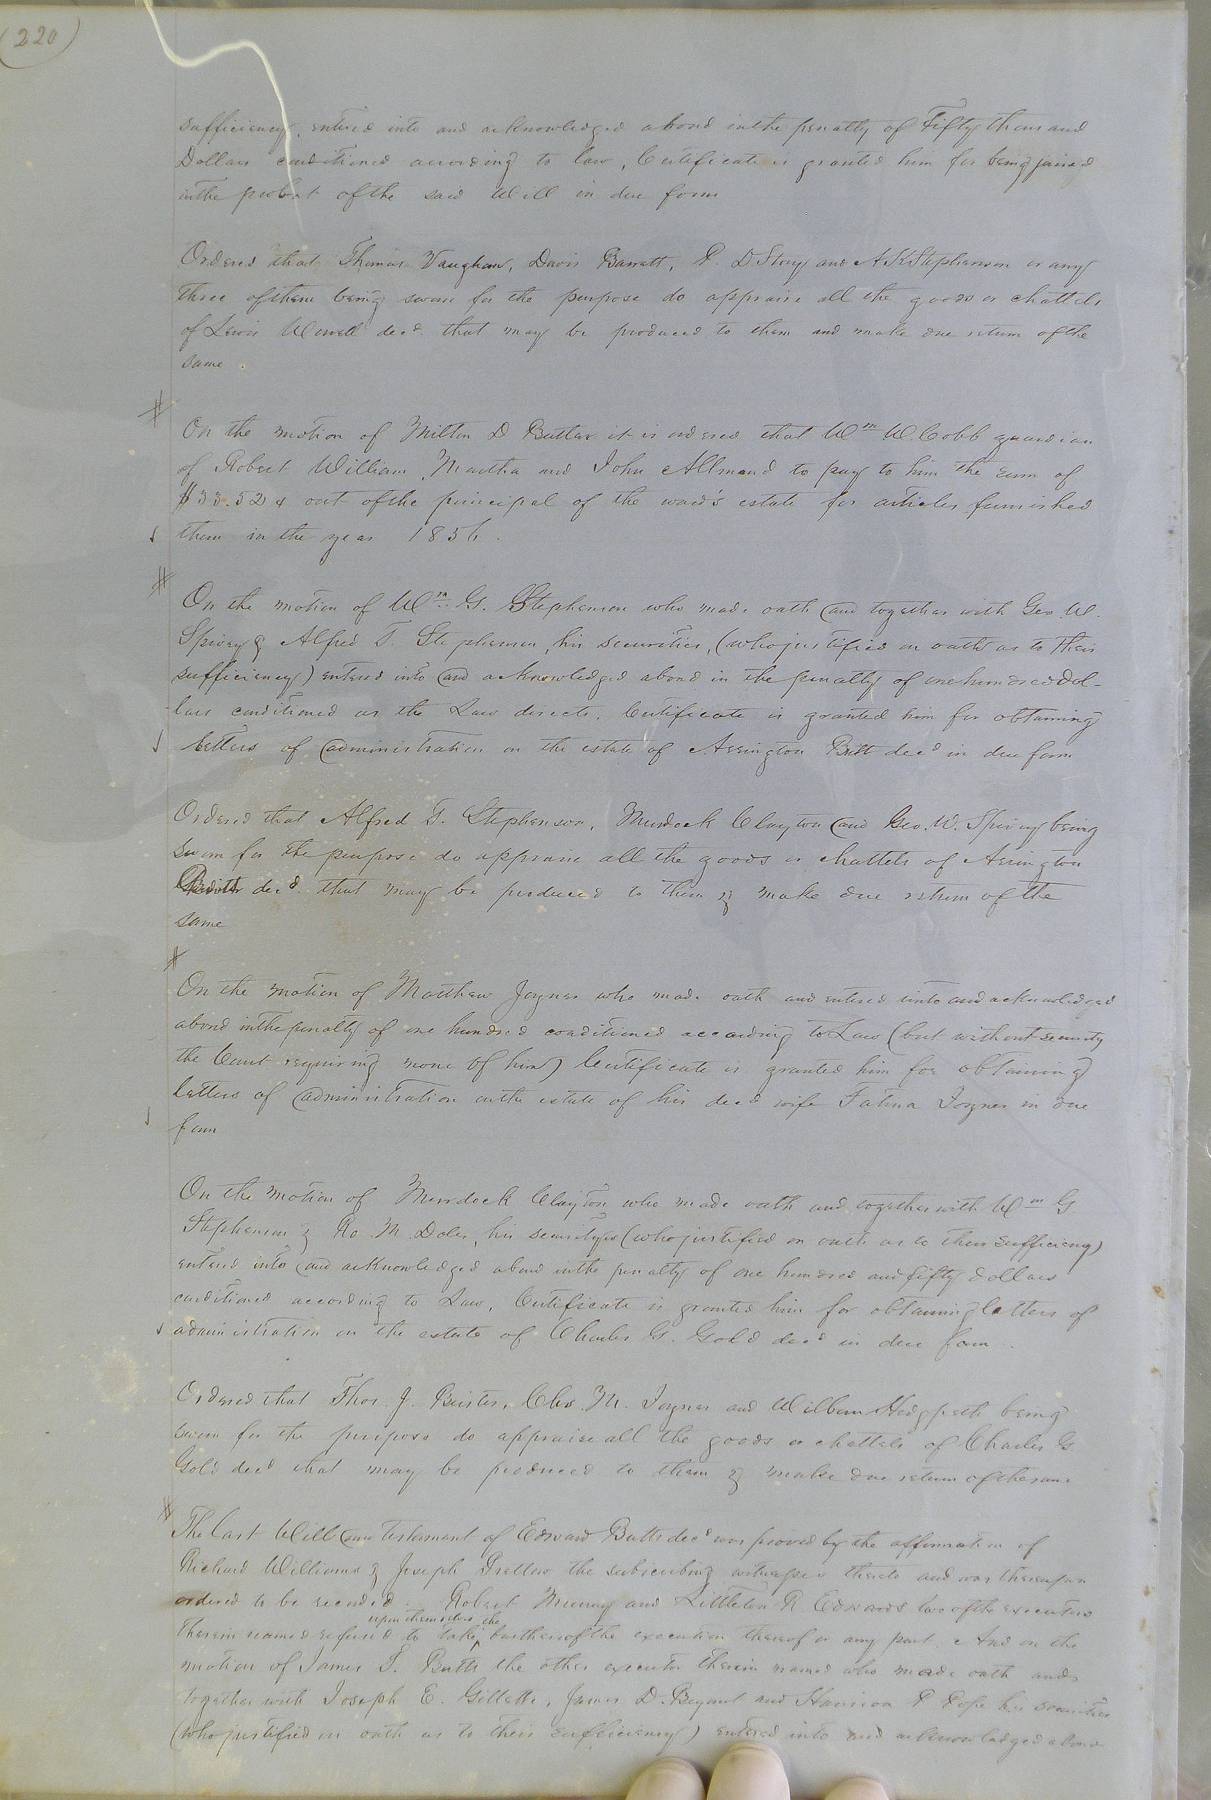 (220)
sufficiency, entered into and acknowledged abond inthe penalty of Fifty thousand
Dollars conditioned according to law, Certificate is granted him for being joined
inthe probat of the said Will in due form
Ordered that Thomas Vaughan, Davis Barrett, P. D Story and A K Stephenson or any
three of them being sworn for the purpose do appraise all the goods or chattels
of Lewis Worrell decd that may be produced to them and make due return of the
same.
On the motion of Milton D Butler it is ordered that Wm W. Cobb guardian
of Robert William, Martha and John Allmond to pay to him the sum of
out of the principal of the ward's estate for articles furnished
them in the year 1856.
On the motion of Wm G. Stephenson who made oath and together with Geo. W.
Spivey & Alfred T. Stephenson, his securities, (who justified on oath as to their
sufficiency) entered into and acknowledged abond in the penalty of one hundred dol-
lars conditioned as the Law directs. Certificate is granted him for obtaining
letters of administration on the estate of Arrington Britt decd in due form
Ordered that Alfred T. Stephenson, Murdock Clayton and Geo. W. Spivey being
sworn for the purpose do appraise all the goods or chattels of Arrington
Britt decd that may be produced to them & make due return of the
same
On the motion of Matthew Joyner who made oath and entered into and acknowledged
abond inthe penalty of one hundred conditioned according to Law (but without security
the Court requiring none of him) Certificate is granted him for obtaining
letters of administration onthe estate of his decd wife Joyner in due
form
On the motion of Murdock Clayton who made oath and together with Wm G
Stephenson & Ro. M. Doles, his securitys (who justified on oath as to their sufficiency)
entered into and acknowledged abond inthe penalty of one hundred and fifty dollars
conditioned according to Law, Certificate is granted him for obtaining letters of
administration on the estate of Charles G. Gold decd in due form.
Ordered that Thos. J. Bristes, Chs. M. Joyner and William Hedgpeth being
sworn for the purpose do appraise all the goods or chattels of Charles G
Gold decd that may be produced to them & make due return of the same
The last Will and testament of Edward Butts decd was proved by the affirmation of
Richard Williams & Joseph Pretlow the subscribing witnesses thereto and was thereupon
ordered to be recorded. Robert Murray and Littleton R Edwards two of the executors
therein named refused to take upon themselves the burthen of the execution thereof or any part. And on the
motion of James T. Butts the other executor therein named who made oath and
together with Joseph E. Gillette, James D. Bryant and Harrison P Pope his securities
(who justified on oath as to their sufficiency) entered into and acknowledged abond